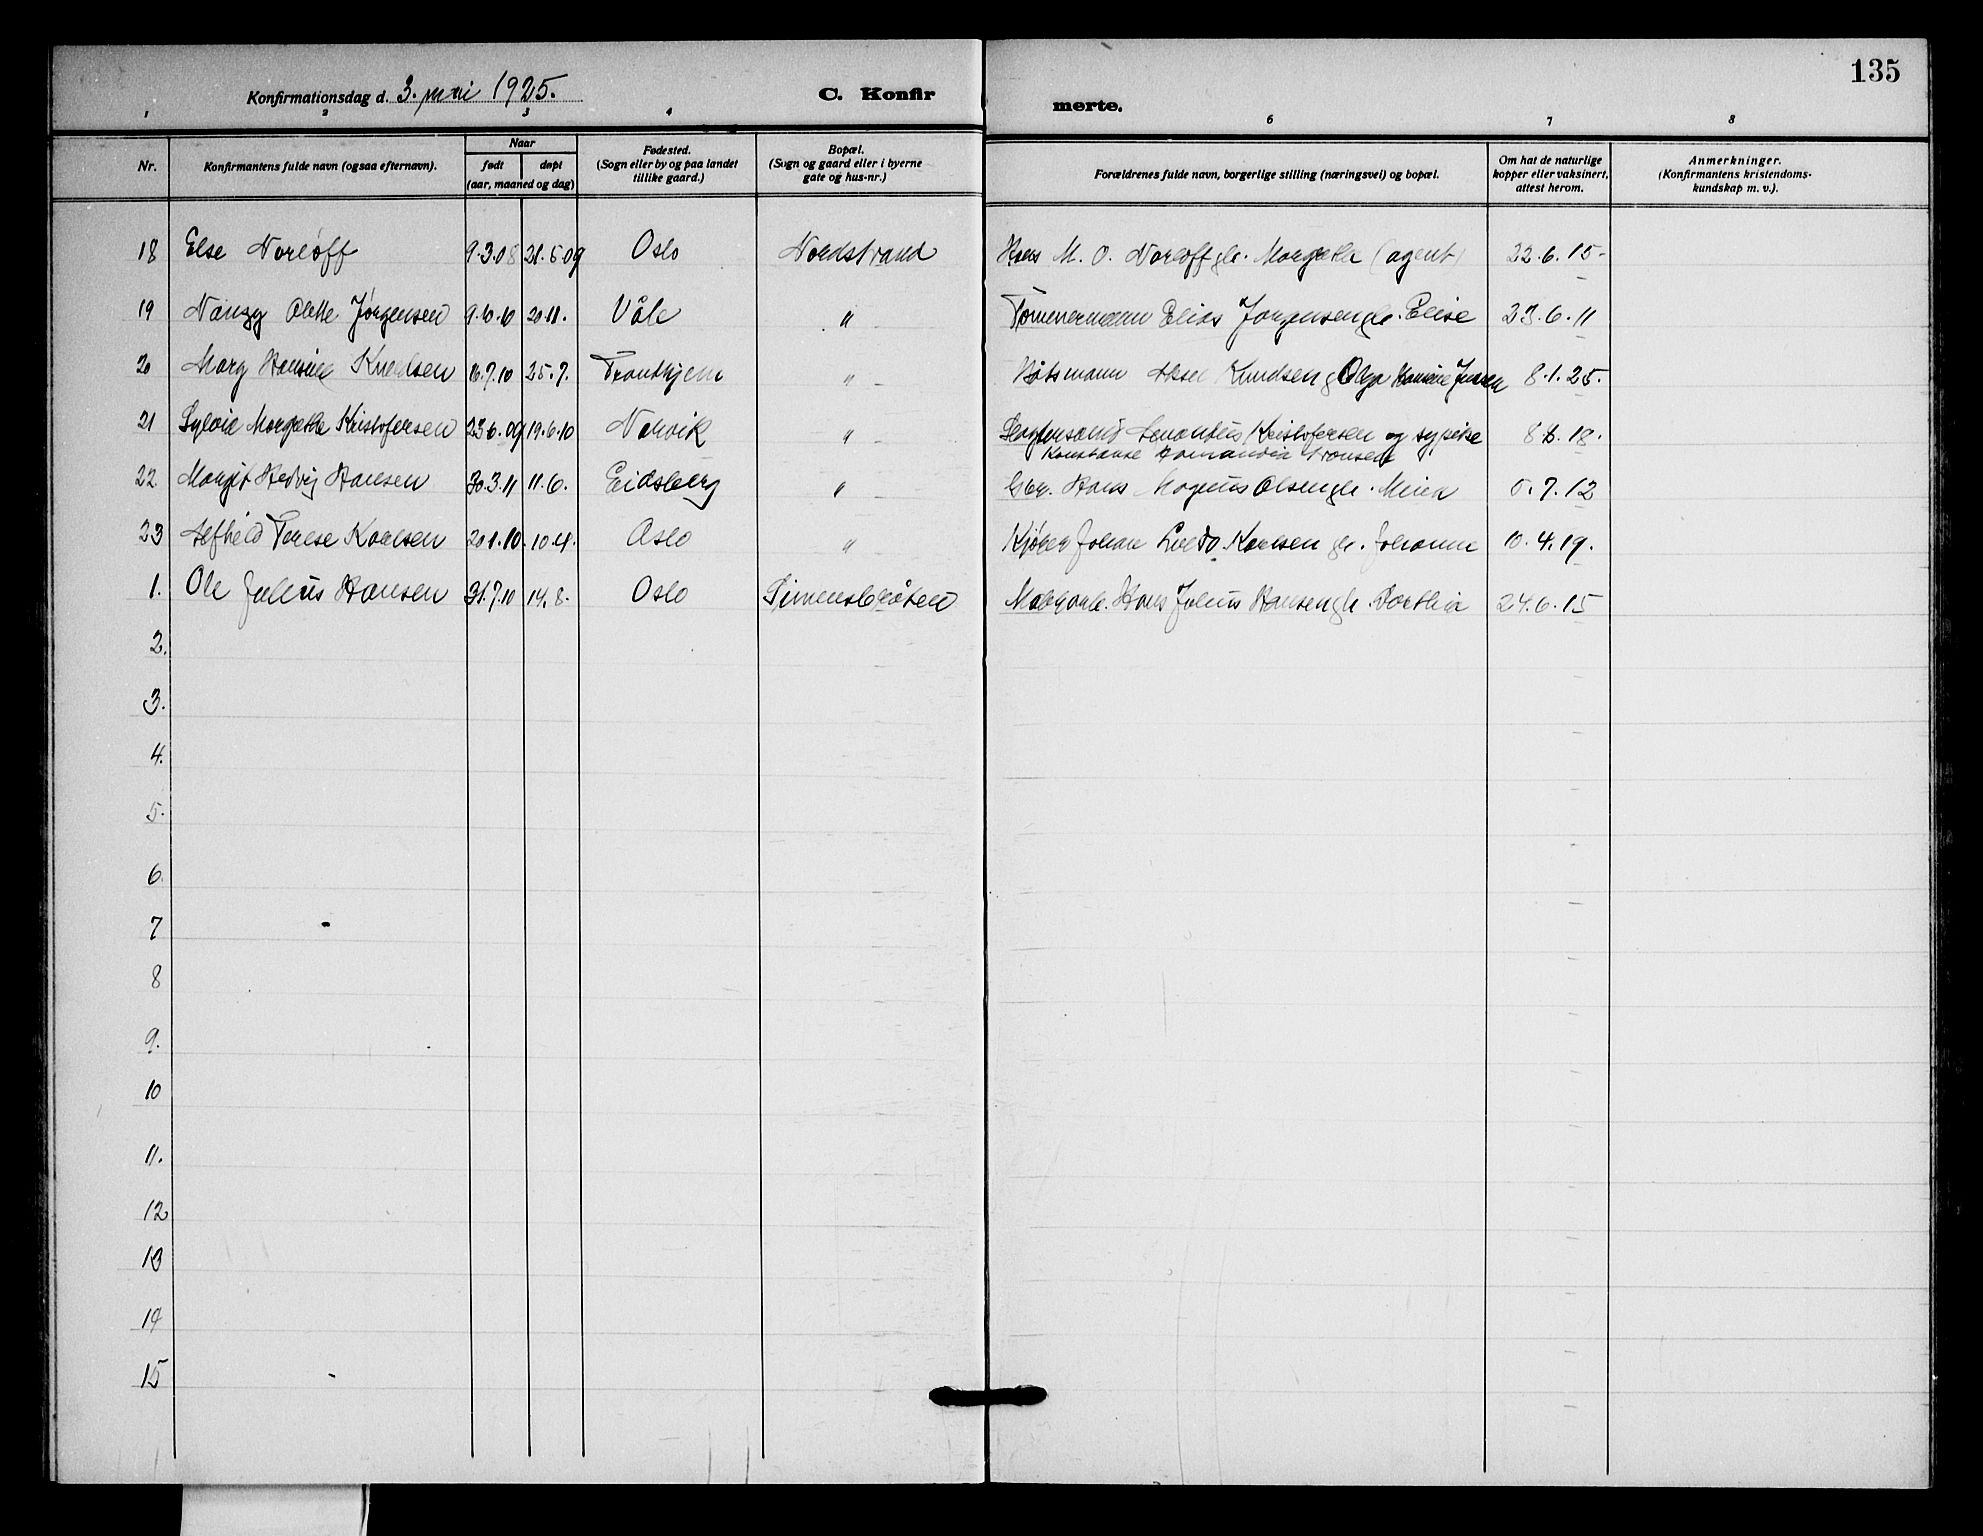 135
Konfirmationsdag d. 3. mai 1925.
C. Konfir
merte.
1 2 3 4 6 7 8
Nr.
Konfirmantens fulde navn (ogsaa efternavn).
Naar
født
døpt
(aar, maaned og dag)
Fødested.
(Sogn eller by og paa landet
tillike gaard.)
Bopæl.
(Sogn og gaard eller i byerne
gate og hus-nr.)
Forældrenes fulde navn, borgerlige stilling (næringsvei) og bopæl.
Om hat de naturlige
kopper eller vaksinert,
attest herom.
Anmerkninger.
(Konfirmantens kristendoms-
kundskap m. v.).
18 Else Norløff 9.3.08 21.5.09 Oslo Nordstrand Hans M. O. Norløff Margrethe (agent) 22.6.15
19 Olette Jørgensen 20.11. Våle " Tømmermann Elias Jørgensen Elise 23.6.11
20 Hansine Knudsen 16.7.10 25.7. Trondhjem " Båtsmann Aksel Knudsen Olga Hansine Jensen 8.1.25.
21 Sylvia Margrethe Kristofersen 23.6.09 19.6.10 Narvik " Kristofersen og 18.
22 Margit Hedvig Hansen 30.3.11 11.6. Eidsberg " Hans Magnus Olsen 7.12
23 Alfhild Terese Karlsen 20.1.10. 10.4. Oslo " Johan Karlsen Johanne 10.4.19.
1. Ole Julius Hansen 31.7.10 14.8. Oslo Simensbråten Hans Julius Hansen Dorthea 24.6.15
2.
3.
4.
5.
6.
7
8
9.
10
11.
12
13
14
15